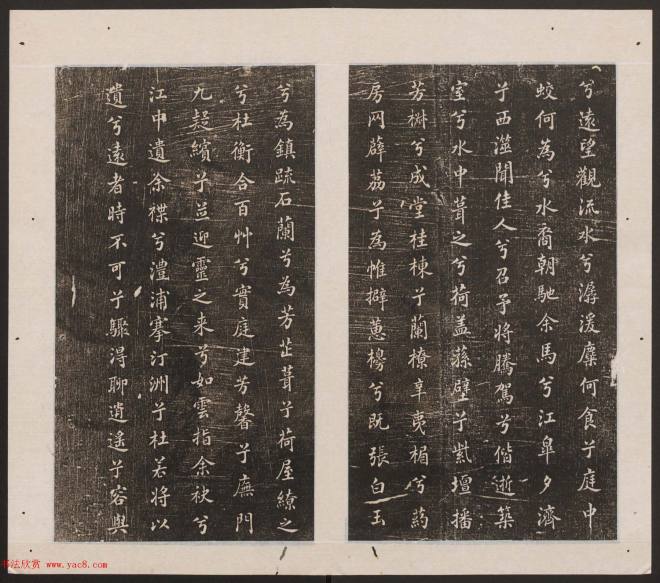 兮遠望觀流水兮潺湲麋何食兮庭中
蛟何為兮水裔朝馳余馬兮江皋夕濟
兮西澨聞佳人兮召予將騰駕兮偕逝築
室兮水中葺之兮荷盖蓀壁兮紫壇播
芳椒兮成堂桂棟兮蘭橑辛夷楣兮葯
房网薜荔兮為帷擗蕙櫋兮既張白玉
兮為鎮疏石蘭兮為芳芷葺兮荷屋繚之
兮杜衡合百艸兮實庭建芳馨兮廡門
九疑繽兮竝迎靈之来兮如雲指余袂兮
江中遺余褋兮澧浦搴汀洲兮杜若將以
遺兮遠者時不可兮驟淂聊逍遙兮容與
书法欣赏 www.yac8.com